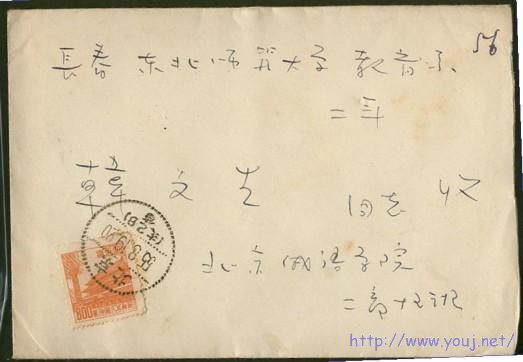 56
長春 东北师范大学 教育系
二年
韓文 同志 收
北京俄语学院
北京
55.8.19.20
800
http://www.youj.net/